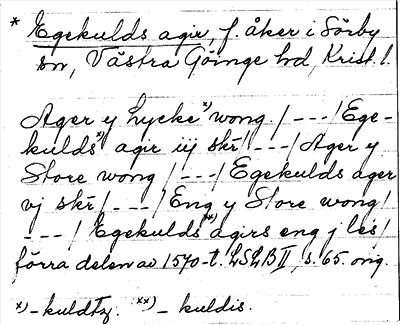 * Egekulds agir, f. åker i Sörby
sn, Västra Göinge hd, Krist. l.
Ager y Lycke x) wong. / - - - / Ege-
kulds x) agir iij skr̄ / - - - / Ager y
Store wong / - - - / Egekulds ager
vj skr̄ / - - - / Eng y Store wong /
- - - / Egekulds xx) agirs eng j les /
förra delen av 1570-t. LSLB II, s. 65. orig.
x) - kuldtz. xx) - kuldis.